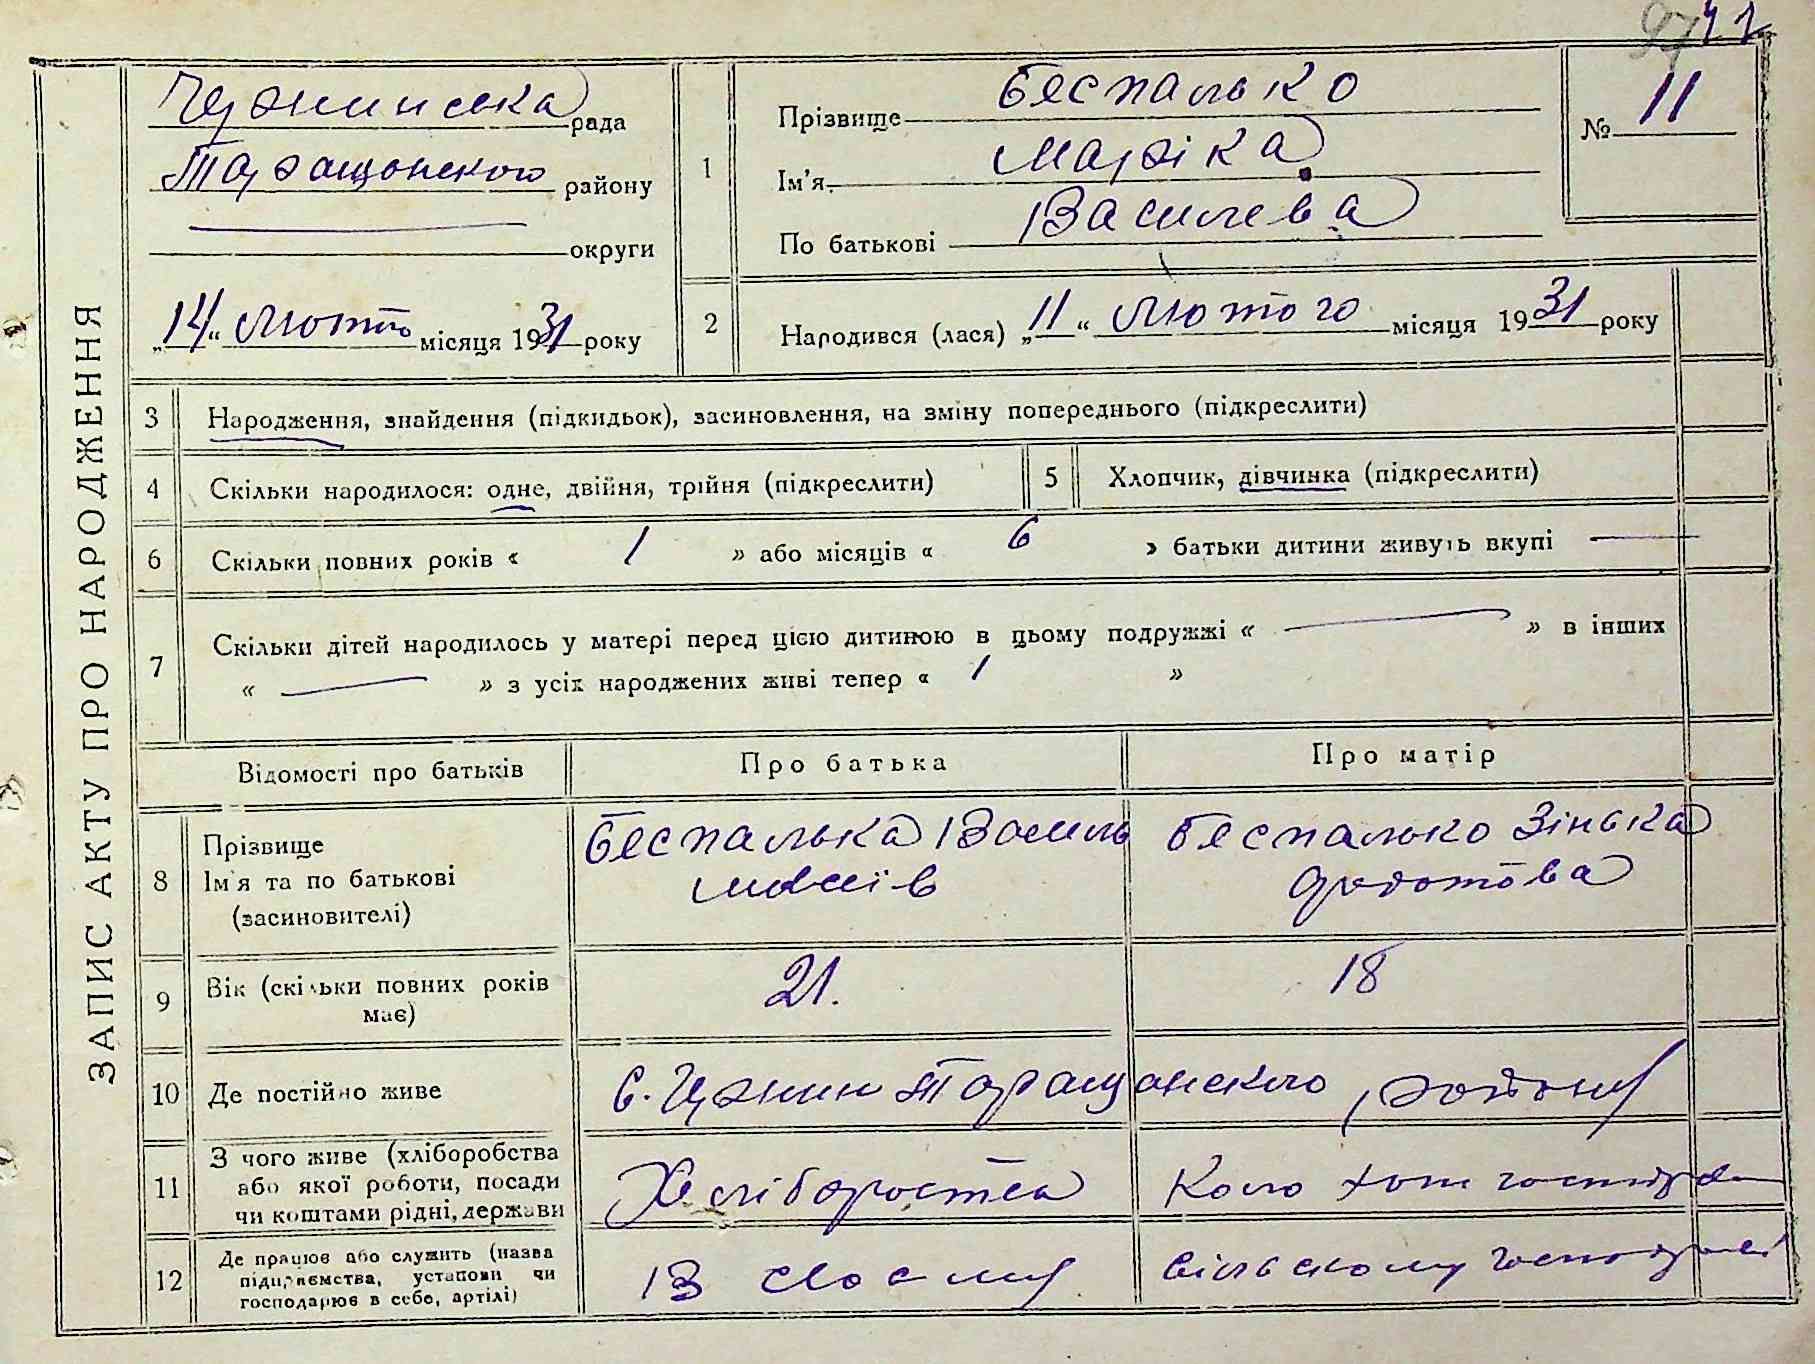 97 42
ЗАПИС АКТУ ПРО НАРОДЖЕННЯ
Чужинська рада
Таращонского району
округи
„14“ Лютого місяця 1931 року
1
Прізвище Беспалько
Ім'я Маріка
По батькові Василева
№ 11
2
Народився (лася) „11“ Лютого місяця 1931 року
3 Народження, знайдення (підкидьок), засиновлення, на зміну попереднього (підкреслити)
4 Скільки народилося: одне, двійня, трійня (підкреслити)
5 Хлопчик, дівчинка (підкреслити)
6 Скільки повних років « 1 » або місяців « 6 » батьки дитини живуть вкупі —
7 Скільки дітей народилось у матері перед цією дитиною в цьому подружжі « — » в інших
« — » з усіх народжених живі тепер « 1 »
Відомості про батьків Про батька Про матір
8 Прізвище
Ім'я та по батькові
(засиновителі)
Беспалька Василь
Мосіїв
Беспалько Зінька
Федотова
9 Вік (скільки повних років
має)
21.
18
10 Де постійно живе с. Чужин Таращонского району
11 З чого живе (хліборобства
або якої роботи, посади
чи коштами рідні, держави
Хліборобства
Коло хат господар
12 Де працює або служить (назва
підприємства, установи чи
господарює в себе, артілі)
В своєму
сільському господарстві